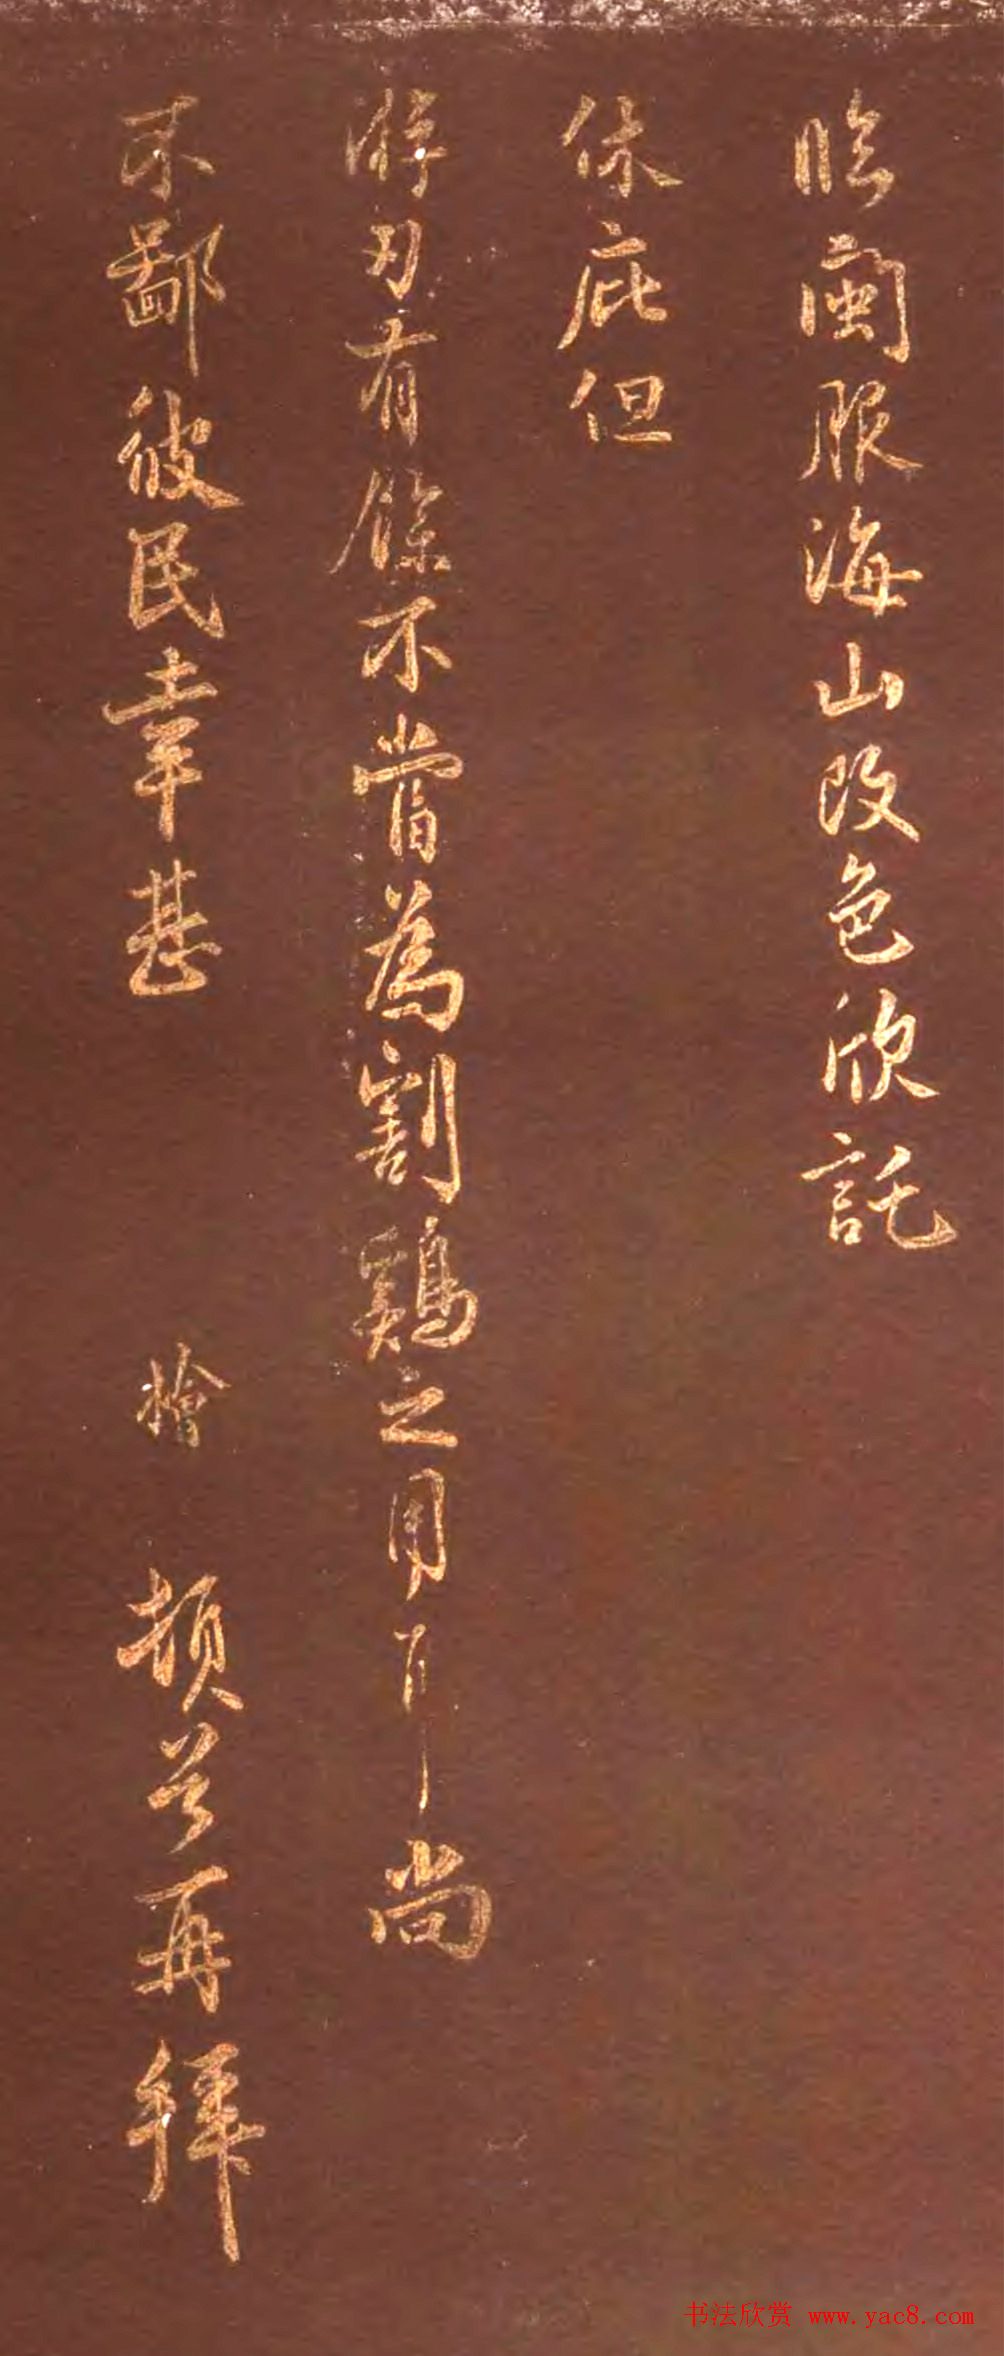 臨閩服海山改色欣託
休庇但
游刃有餘不嘗為割鷄之用耳尚
不鄙彼民幸甚　檜　頓首再拜
书法欣赏 www.yac8.com